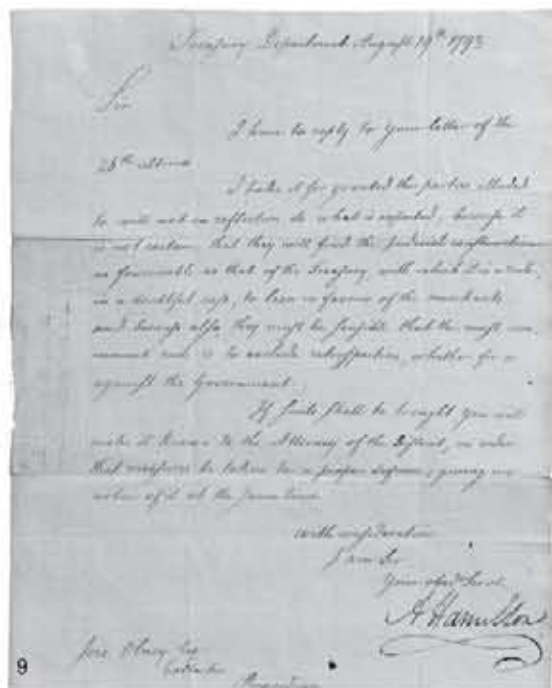 Treasury Department August 19th 1793
Sir
I have to reply to your letter of the
26th ultimo
I take it for granted the parties alluded
to will not on reflection do what is expected, because it
is not certain that they will find the judicial construction
as favourable as that of the Treasury, with which it is a rule,
in a doubtful case, to lean in favour of the merchants
and because also they must be sensible that the most
rule is to exclude retrospection, whether for or
against the Government.
If suits shall be brought you will
make it known to the Attorney of the District, in order
that measures be taken for a proper defence; giving me
notice of it at the same time.
With consideration
I am Sir
Your obed Servt
A Hamilton
Jere Olney Esq
Providence
9